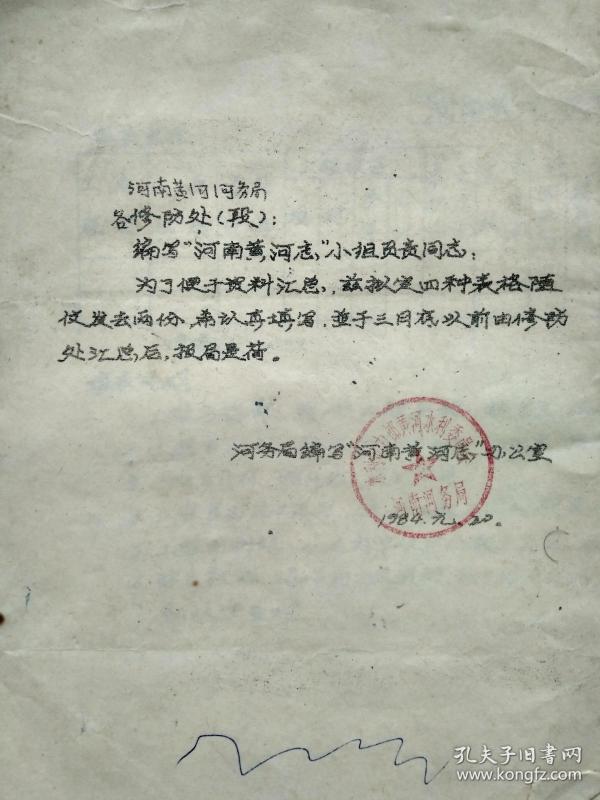 河南黄河河务局
各修防处(段):
编写"河南黄河志"小组负责同志:
为了便于资料汇总,兹拟定四种表格随
仅发去两份,希认真填写,並于三月底以前由修防
处汇总后,报局是荷。
河务局编写"河南黄河志"办公室
1984.元.20.
黄河水利委员会
河南河务局
孔夫子旧书网
www.kongfz.com